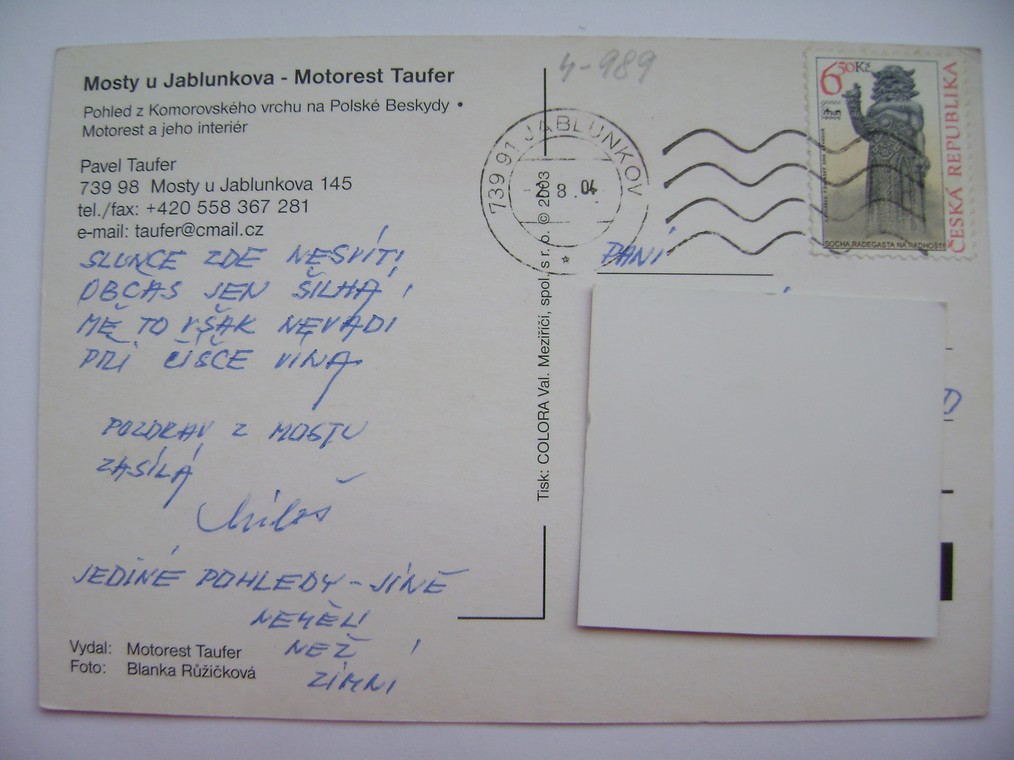 Mosty u Jablunkova - Motorest Taufer
Pohled z Komorovského vrchu na Polské Beskydy •
Motorest a jeho interiér
Pavel Taufer
739 98 Mosty u Jablunkova 145
tel./fax: +420 558 367 281
e-mail: taufer@cmail.cz
SLUNCE ZDE NESVÍTÍ
OBČAS JEN ŠILHÁ
MĚ TO VŠAK NEVADÍ
PŘI ČÍŠCE VÍNA
POZDRAV Z MOSTŮ
ZASÍLÁ
Miloš
JEDINÉ POHLEDY - JINÉ
NEMĚLI
NEŽ
ZIMNÍ
Vydal: Motorest Taufer
Foto: Blanka Růžičková
Tisk: COLORA Val. Meziříčí, spol. s r. o. © 2003
4-989
739 91 JABLUNKOV
8 04
6 50 Kč
ČESKÁ REPUBLIKA
SOCHA RADEGASTA NA RADHOŠTI
PANÍ
D